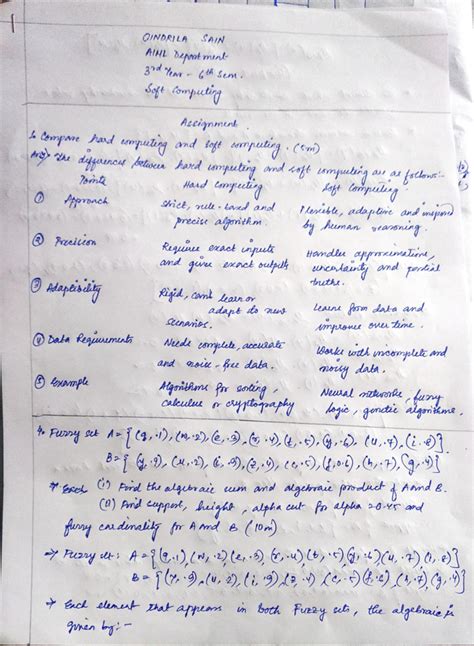 OINDRILA SAIN
AIML Department
3rd Year - 6th Sem.
Soft Computing
Assignment
1. Compare hard computing and soft computing. (5m)
Ans) The differences between hard computing and soft computing are as follows:-
Points Hard Computing Soft Computing
① Approach Strict, rule-based and precise algorithm. Flexible, adaptive and inspired by human reasoning.
② Precision Require exact inputs and give exact outputs Handles approximations, uncertainty and partial truths.
③ Adaptibility Rigid, can't learn or adapt to new scenarios. Learns from data and improve over time.
④ Data Requirements Needs complete, accurate and noise-free data. Works with incomplete and noisy data.
⑤ Example Algorithms for sorting, calculus or cryptography Neural networks, fuzzy logic, genetic algorithms.
4. Fuzzy set A = {(q,.1),(w,.2),(e,.3),(r,.4),(t,.5),(y,.6),(u,.7),(i,.8)}
(i) Find the algebraic sum and algebraic product of A and B.
(ii) Find support, height, alpha cut for alpha > 0.45 and
fuzzy cardinality for A and B (10m)
→ Fuzzy set: A = {(q,.1),(w,.2),(e,.3),(r,.4),(t,.5),(y,.6),(u,.7),(i,.8)}
→ Each element that appears in both Fuzzy sets, the algebraic is
given by:-